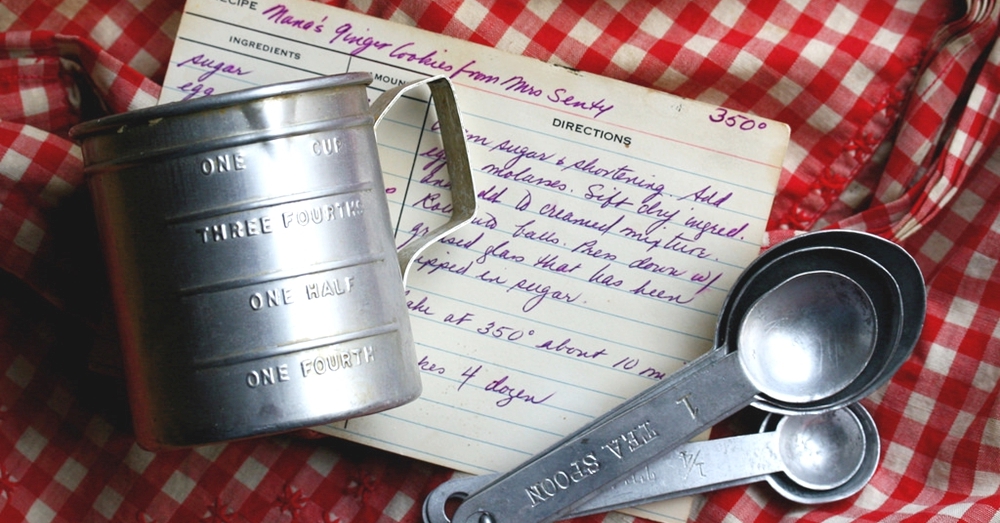 RECIPE Nana's Ginger Cookies from Mrs Senty 350°
INGREDIENTS AMOUN DIRECTIONS
sugar
egg
Cream sugar & shortening. Add
egg molasses. Sift dry ingred.
and add to creamed mixture.
Roll into balls. Press down w/
greased glass that has been
dipped in sugar.
Bake at 350° about 10 m
kes 4 dozen
ONE CUP
THREE FOURTHS
ONE HALF
ONE FOURTH
1 TEA SPOON
1/4